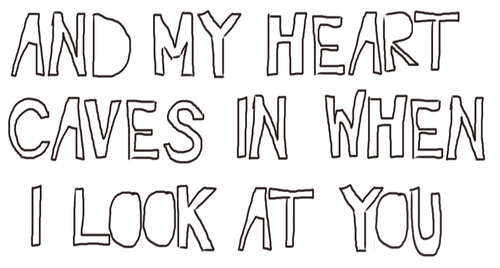 AND MY HEART
CAVES IN WHEN
I LOOK AT YOU